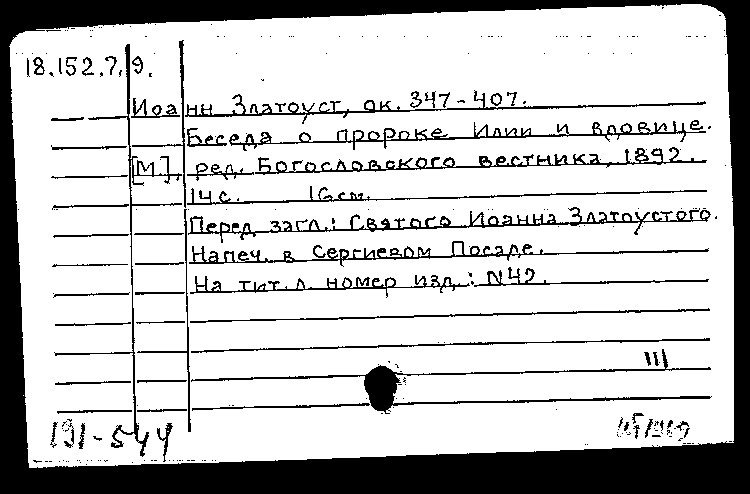 18.152.7.9.
Иоанн Златоуст, ок. 347-407.
Беседа о пророке Илии и вдовице.
[М], ред. Богословского вестника, 1892.
14 с. 16 см.
Перед загл.: Святого Иоанна Златоустого.
Напеч. в Сергиевом Посаде.
На тит. л. номер изд.: N42.
III
191-544